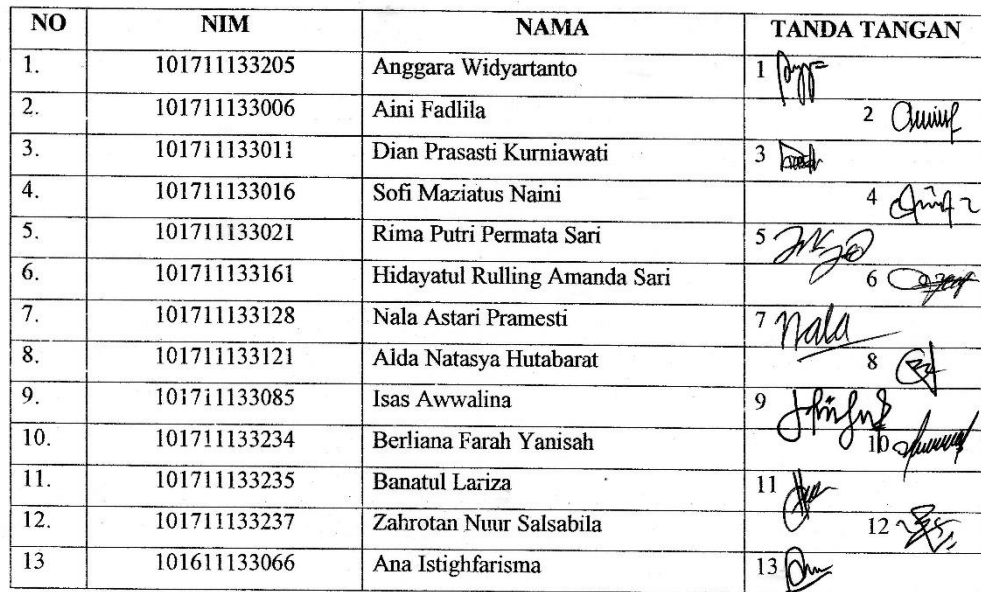 NO NIM NAMA TANDA TANGAN
1. 101711133205 Anggara Widyartanto 1
2. 101711133006 Aini Fadlila 2
3. 101711133011 Dian Prasasti Kurniawati 3
4. 101711133016 Sofi Maziatus Naini 4
5. 101711133021 Rima Putri Permata Sari 5
6. 101711133161 Hidayatul Rulling Amanda Sari 6
7. 101711133128 Nala Astari Pramesti 7 Nala
8. 101711133121 Alda Natasya Hutabarat 8
9. 101711133085 Isas Awwalina 9
10. 101711133234 Berliana Farah Yanisah 10
11. 101711133235 Banatul Lariza 11
12. 101711133237 Zahrotan Nuur Salsabila 12
13 101611133066 Ana Istighfarisma 13